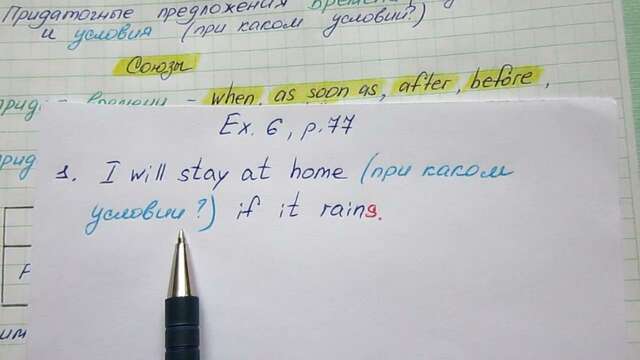 Придаточные предложения времени
и условия (при каком условии?)
Союзы
прид. времени - when, as soon as, after, before,
Ex. 6, p. 77
прид
1. I will stay at home (при каком
условии?) if it rains.